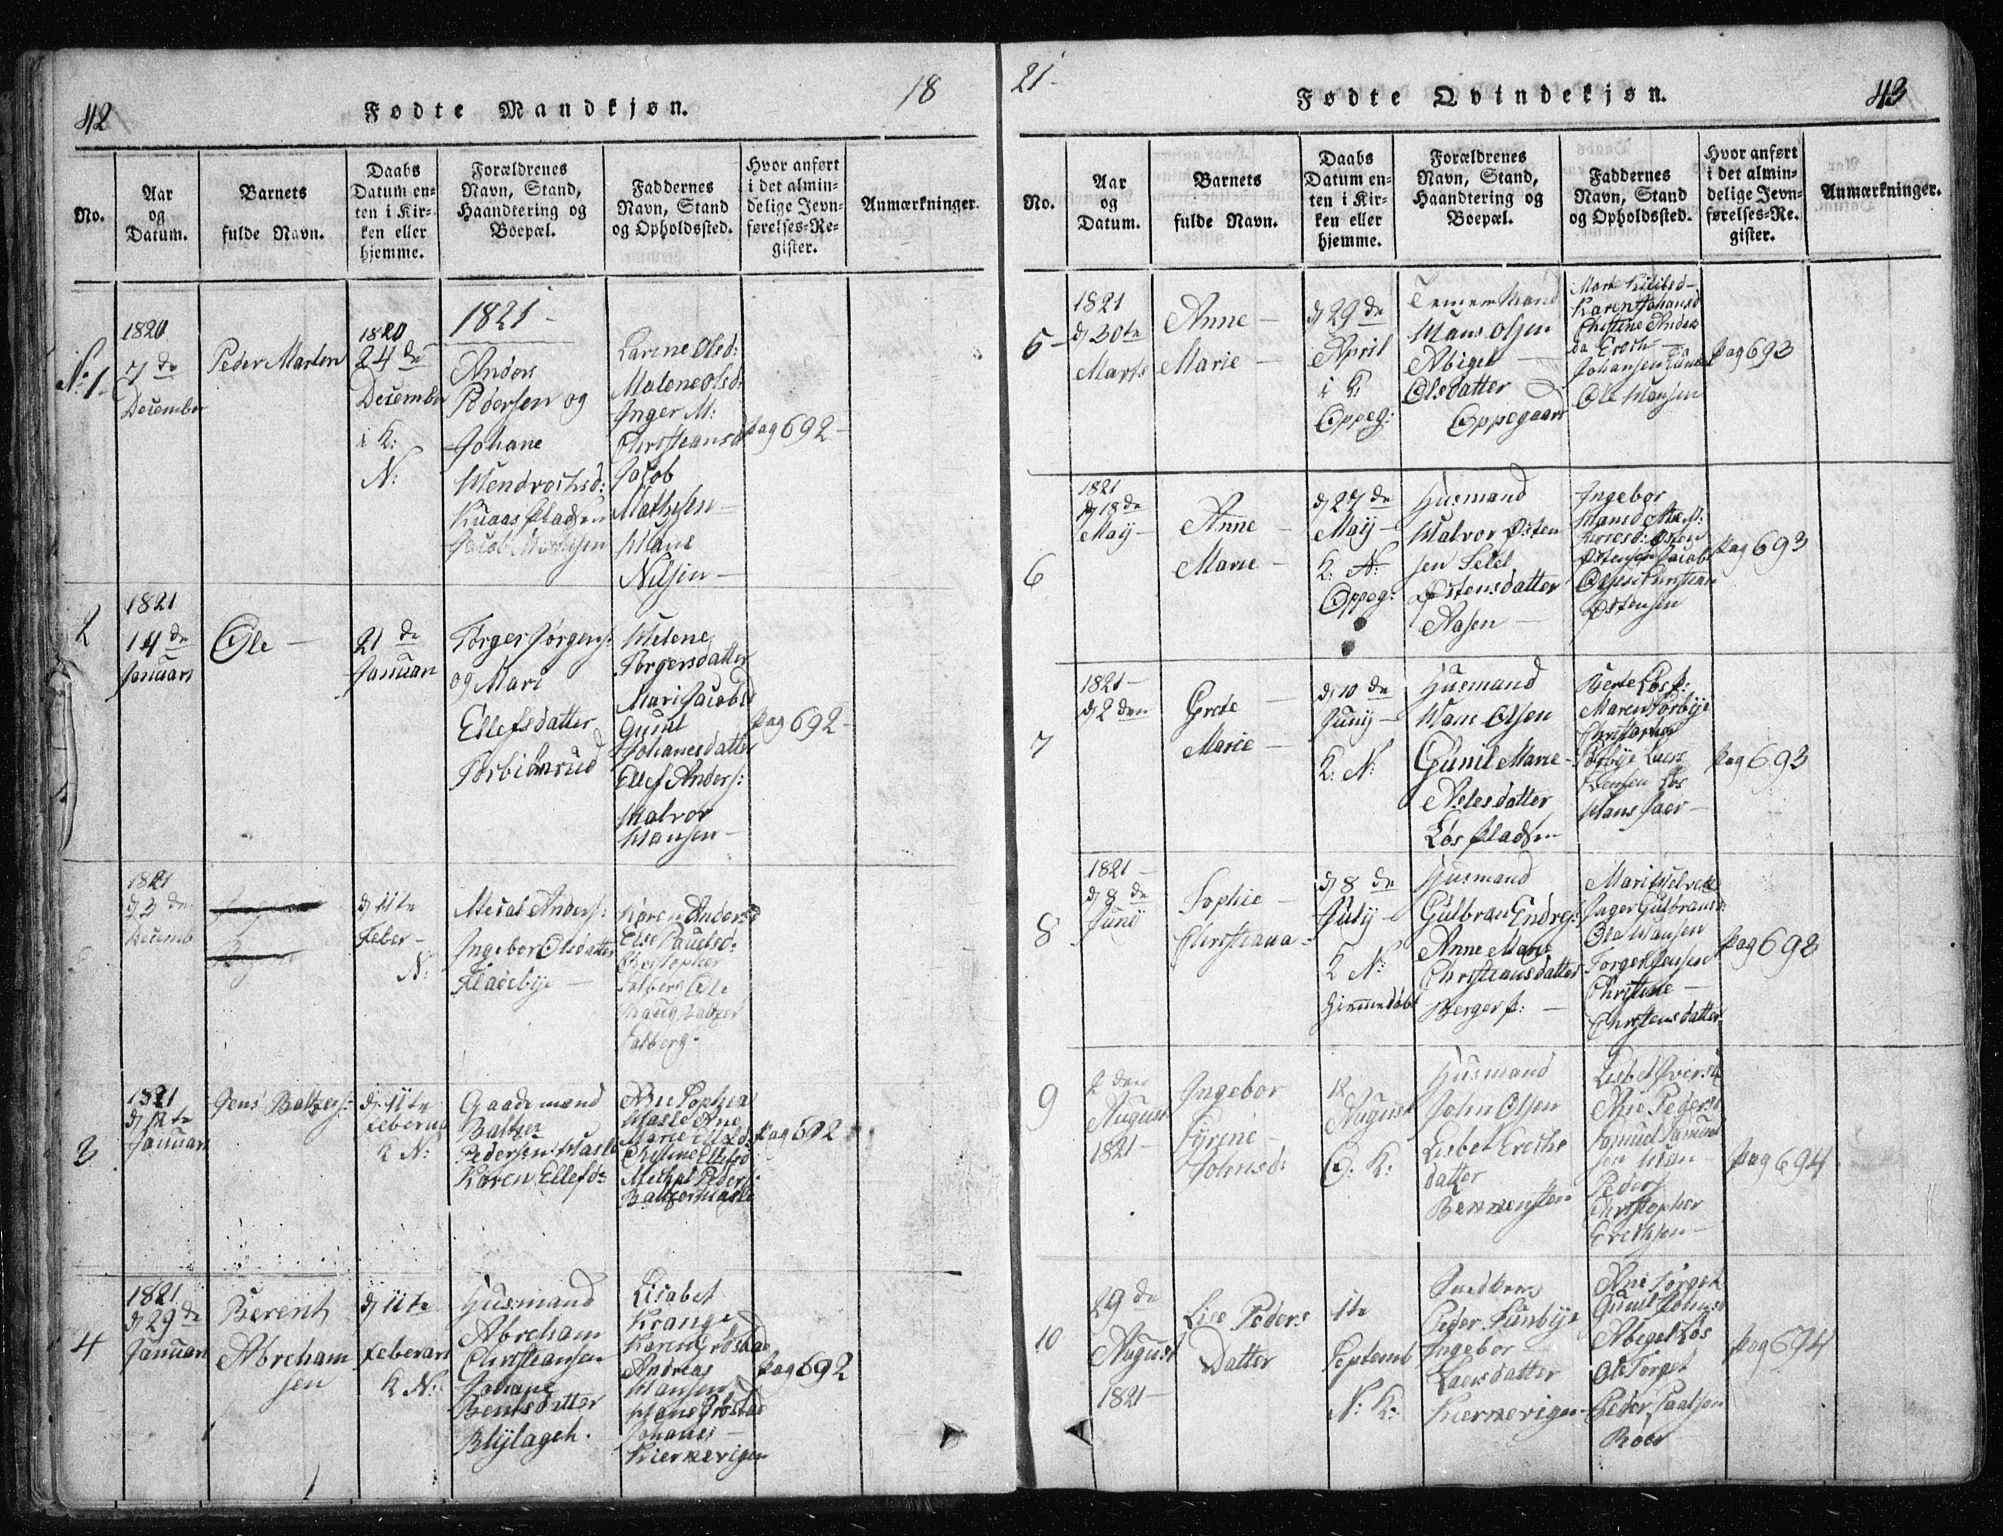 42
Fødte Mandkjøn.
18
No.
Aar
og
Datum.
Barnets
fulde Navn.
Daabs
Datum en-
ten i Kir-
ken eller
hjemme.
Forældrenes
Navn, Stand,
Haandtering og
Boepæl.
Faddernes
Navn, Stand
og Opholdssted.
Hvor anført
i det almin-
delige Jevn-
førelses-Re-
gister.
Anmærkninger.
No. 1.
1820
7 de
December
Peder Marten
1820
24 de
December
i K:
N:
1821
Anders
Pedersen og
Johane
Kuaas Pladsen
Jacob Mathisen
Larine Olsd:
Malene Olsd:
Inger M:
Christiansd
Jacob
Mathisen
Hans
Nilsen
Pag 692
2
1821
14 de
Januari
Ole
21 de
Januari
Torger Jørgens:
og Mari
Ellefsdatter
Helene
Torgersdatter
Mari Jacobsd
Gunil
Johanesdatter
Ellef Anders:
Halvor
Hansen
Pag 692
1821
d 3 de
Decemb
d 11te
Feber
N:
Anders:
Ingebor Olsdatter
Fladebye
Karen Anders
Else Paulsd:
Christopher
Ole
Haug Baltzer
3
1821
d 12 te
Januari
Jens Baltzers:
d 11te
Feberua
K N:
Gaardemand
Baltzer
Pedersen Hasle
Karen Ellefsd:
Ane Sophia
Hasle Ane
Marie Ellefsd:
Christine Ellefsd
Mickel Peders:
Baltzer Hasle
Pag 692
4
1821
d 29 de
Januari
Berent
Abreham
sen
d 11te
Feberari
K N:
Husmand
Abreham
Christiansen
Johane
Bentsdatter
Blylageh.
Lisabet
Krange
Karen Grøstad
Andreas
Hansen
Hans Grøstad
Johanes
Kiernevigen
Pag 692
21
Fødte Qvindekjøn.
43
No.
Aar
og
Datum.
Barnets
fulde Navn.
Daabs
Datum en-
ten i Kir-
ken eller
hjemme.
Forældrenes
Navn, Stand,
Haandtering og
Boepæl.
Faddernes
Navn, Stand
og Opholdssted.
Hvor anført
i det almin-
delige Jevn-
førelses-Re-
gister.
Anmærkninger.
5
1821
d 30te
Marts
Anne
Marie
d 29 de
April
i K:
Oppeg:
Temermand
Hans Olsen
Abigel
Olsdatter
Oppegaard
Karen Johansd
Christine Anders
Johansen
Ole Hansen
Pag 693
6
1821
d 18 de
Maij
Anne
Marie
d 27 de
Maij
K: N:
Oppeg:
Husmand
Halvor Østen
sen Selel
Østensdatter
Aasen
Ingebor
Hansd
Østensen Jacob
Olsen Christian
Østensen
Pag 693
7
1821
d 2 den
Grete
Marie
d 10 de
Junij
K: N:
Husmand
Hans Olsen
Gunil Marie
Aslesdatter
Løs Pladsen
Berte Løs P:
Maren Sørbye
Christopher
Sørbye Lars
Jensen Løs
Hans Jaer
Pag 693
8
1821
d 8 de
Junij
Sophie
Christiana
d 8 de
July
K N:
Husmand
Gulbran Endreg:
Anne Marie
Christiansdatter
Berger P:
Mari
Inger Gulbransd:
Ole Hansen
Torger Jensen
Christine
Christensdatter
Pag 693
9
2 den
August
1821
Ingebor
Syrene
Johnsd:
12
August
O. K:
Husmand
John Olsen
Lisbet Erichs
datter
Bennensten
Lisbet Iversd
Ane Pedersd
Samuel Samuel
sen
Peders
Christopher
Erichsen
Pag 694
10
29 de
August
1821
Lise Peders
Datter
1te
Septemb
N: K:
Peder Sunbije
Ingebor
Larsdatter
Kiernevigen
Ane Torget
Gunil Johnsd
Abigel Løs
Ole Torget
Peder Paalsen
Roer
Pag 694